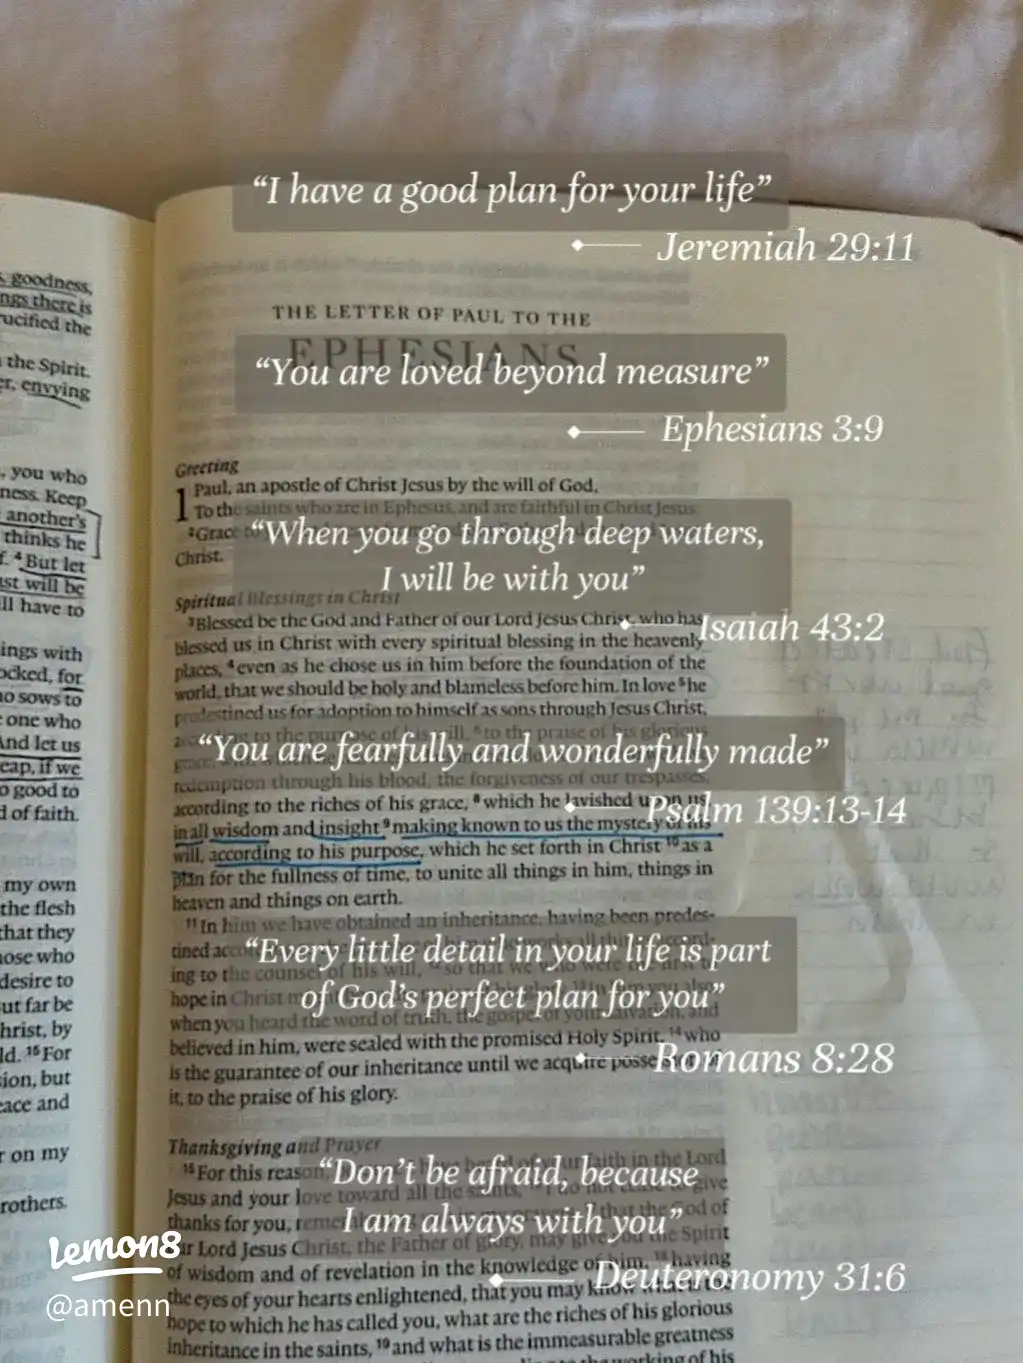 “I have a good plan for your life”
Jeremiah 29:11
THE LETTER OF PAUL TO THE
EPHESIANS
“You are loved beyond measure”
Ephesians 3:9
Greeting
1 Paul, an apostle of Christ Jesus by the will of God,
To the saints who are in Ephesus, and are faithful in Christ Jesus:
2 Grace to
Christ.
“When you go through deep waters,
I will be with you”
Isaiah 43:2
Spiritual Blessings in Christ
3 Blessed be the God and Father of our Lord Jesus Christ, who has
blessed us in Christ with every spiritual blessing in the heavenly
places, 4 even as he chose us in him before the foundation of the
world, that we should be holy and blameless before him. In love 5 he
predestined us for adoption to himself as sons through Jesus Christ,
according to the purpose of his will, 6 to the praise of his glorious
“You are fearfully and wonderfully made”
Psalm 139:13-14
redemption through his blood, the forgiveness of our trespasses,
according to the riches of his grace, 8 which he lavished upon us,
in all wisdom and insight 9 making known to us the mystery of his
will, according to his purpose, which he set forth in Christ 10 as a
plan for the fullness of time, to unite all things in him, things in
heaven and things on earth.
11 In him we have obtained an inheritance, having been predes-
tined
“Every little detail in your life is part
of God’s perfect plan for you”
Romans 8:28
ing to the counsel of his will, 12 so that we who were the first to
hope in Christ
when you heard the word of truth, the gospel of your salvation, and
believed in him, were sealed with the promised Holy Spirit, 14 who
is the guarantee of our inheritance until we acquire
it, to the praise of his glory.
Thanksgiving and Prayer
15 For this reason, your faith in the Lord
“Don’t be afraid, because
I am always with you”
Deuteronomy 31:6
Jesus and your love toward all the saints, give
thanks for you, that the God of
our Lord Jesus Christ, the Father of glory, may give you the Spirit
of wisdom and of revelation in the knowledge of him, 18 having
the eyes of your hearts enlightened, that you may know
hope to which he has called you, what are the riches of his glorious
inheritance in the saints, 19 and what is the immeasurable greatness
working of his
goodness,
ngs there is
rucified the
the Spirit.
envying
, you who
ness. Keep
another’s
thinks he
4 But let
will be
ll have to
ings with
ocked, for
o sows to
one who
And let us
eap, if we
good to
d of faith.
my own
the flesh
that they
hose who
desire to
ut far be
hrist, by
ld. 15 For
sion, but
eace and
r on my
rothers.
Lemon8
@amenn